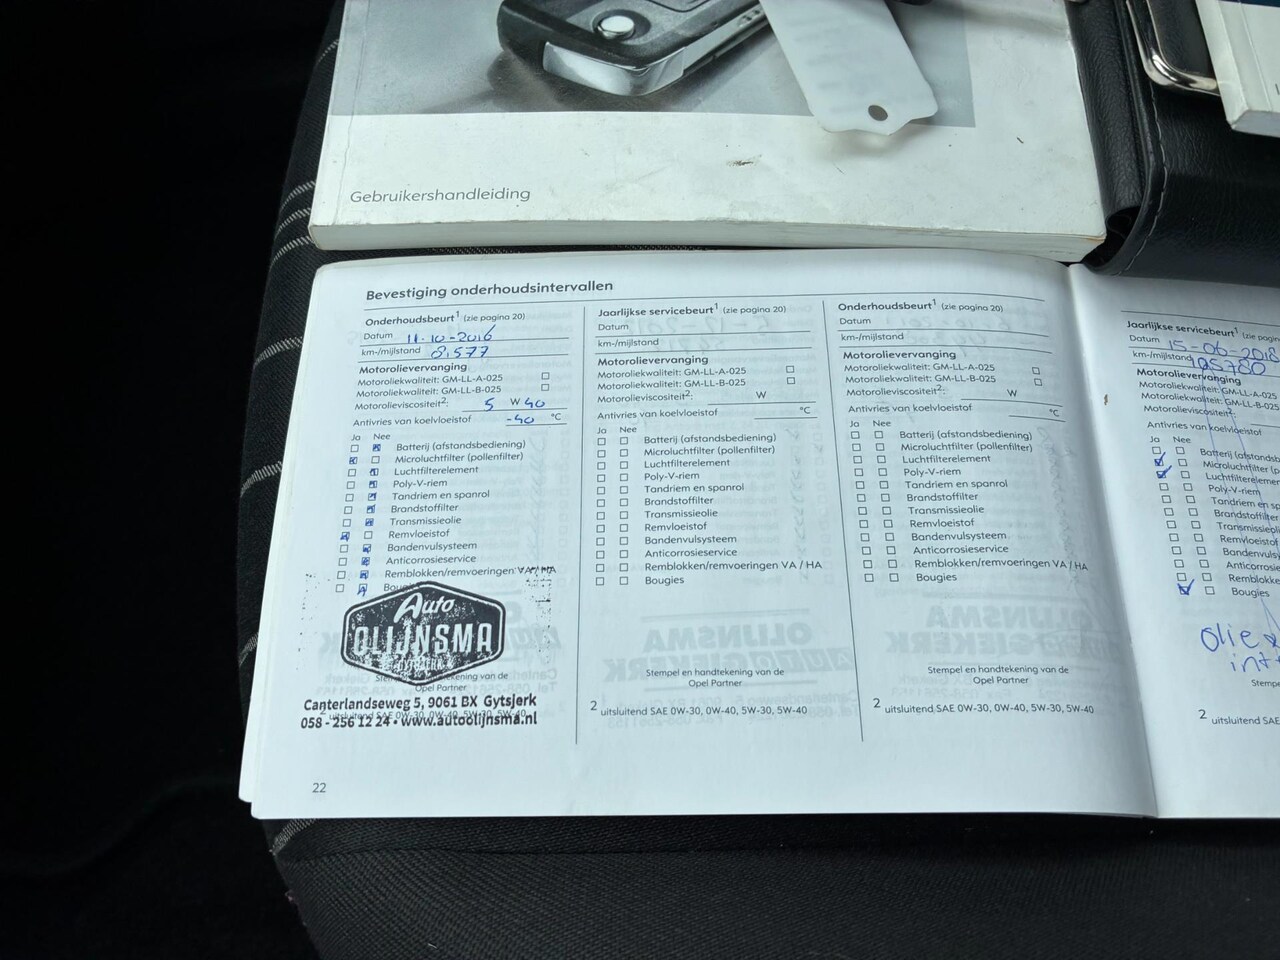 Gebruikershandleiding
Bevestiging onderhoudsintervallen
Onderhoudsbeurt¹ (zie pagina 20)
Datum 11-10-2016
km-/mijlstand 8.577
Motorolievervanging
Motoroliekwaliteit: GM-LL-A-025
Motoroliekwaliteit: GM-LL-B-025
Motorolieviscositeit²: 5 W 40
Antivries van koelvloeistof -40 °C
Ja Nee
Batterij (afstandsbediening)
Microluchtfilter (pollenfilter)
Luchtfilterelement
Poly-V-riem
Tandriem en spanrol
Brandstoffilter
Transmissieolie
Remvloeistof
Bandenvulsysteem
Anticorrosieservice
Remblokken/remvoeringen VA / HA
Auto
OLIJNSMA
GYTSJERK
Opel Partner
Canterlandseweg 5, 9061 BX Gytsjerk
058 - 256 12 24 • www.autoolijnsma.nl
22
Jaarlijkse servicebeurt¹ (zie pagina 20)
Datum
km-/mijlstand
Motorolievervanging
Motoroliekwaliteit: GM-LL-A-025
Motoroliekwaliteit: GM-LL-B-025
Motorolieviscositeit²: W
Antivries van koelvloeistof °C
Ja Nee
Batterij (afstandsbediening)
Microluchtfilter (pollenfilter)
Luchtfilterelement
Poly-V-riem
Tandriem en spanrol
Brandstoffilter
Transmissieolie
Remvloeistof
Bandenvulsysteem
Anticorrosieservice
Remblokken/remvoeringen VA / HA
Bougies
Stempel en handtekening van de
Opel Partner
2 uitsluitend SAE 0W-30, 0W-40, 5W-30, 5W-40
Onderhoudsbeurt¹ (zie pagina 20)
Datum
km-/mijlstand
Motorolievervanging
Motoroliekwaliteit: GM-LL-A-025
Motoroliekwaliteit: GM-LL-B-025
Motorolieviscositeit²: W
Antivries van koelvloeistof °C
Ja Nee
Batterij (afstandsbediening)
Microluchtfilter (pollenfilter)
Luchtfilterelement
Poly-V-riem
Tandriem en spanrol
Brandstoffilter
Transmissieolie
Remvloeistof
Bandenvulsysteem
Anticorrosieservice
Remblokken/remvoeringen VA / HA
Bougies
Stempel en handtekening van de
Opel Partner
2 uitsluitend SAE 0W-30, 0W-40, 5W-30, 5W-40
Jaarlijkse servicebeurt¹ (zie pagina
Datum 15-06-2018
km-/mijlstand 105780
Motorolievervanging
Motoroliekwaliteit: GM-LL-A-02
Motoroliekwaliteit: GM-LL-B-02
Motorolieviscositeit²:
Antivries van koelvloeistof
Ja Nee
Batterij (afstandsb
Microluchtfilter (p
Luchtfilterelemen
Poly-V-riem
Tandriem en sp
Brandstoffilter
Transmissieoli
Remvloeistof
Bandenvuls
Anticorrosie
Remblokke
Bougies
Olie
int
Stempe
2 uitsluitend SAE